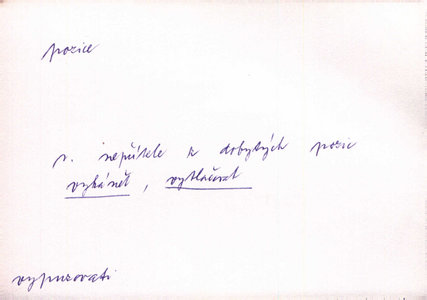 pozice
v. nepřítele z dobytých pozic
vyhánět, vytlačovat
vypuzovati